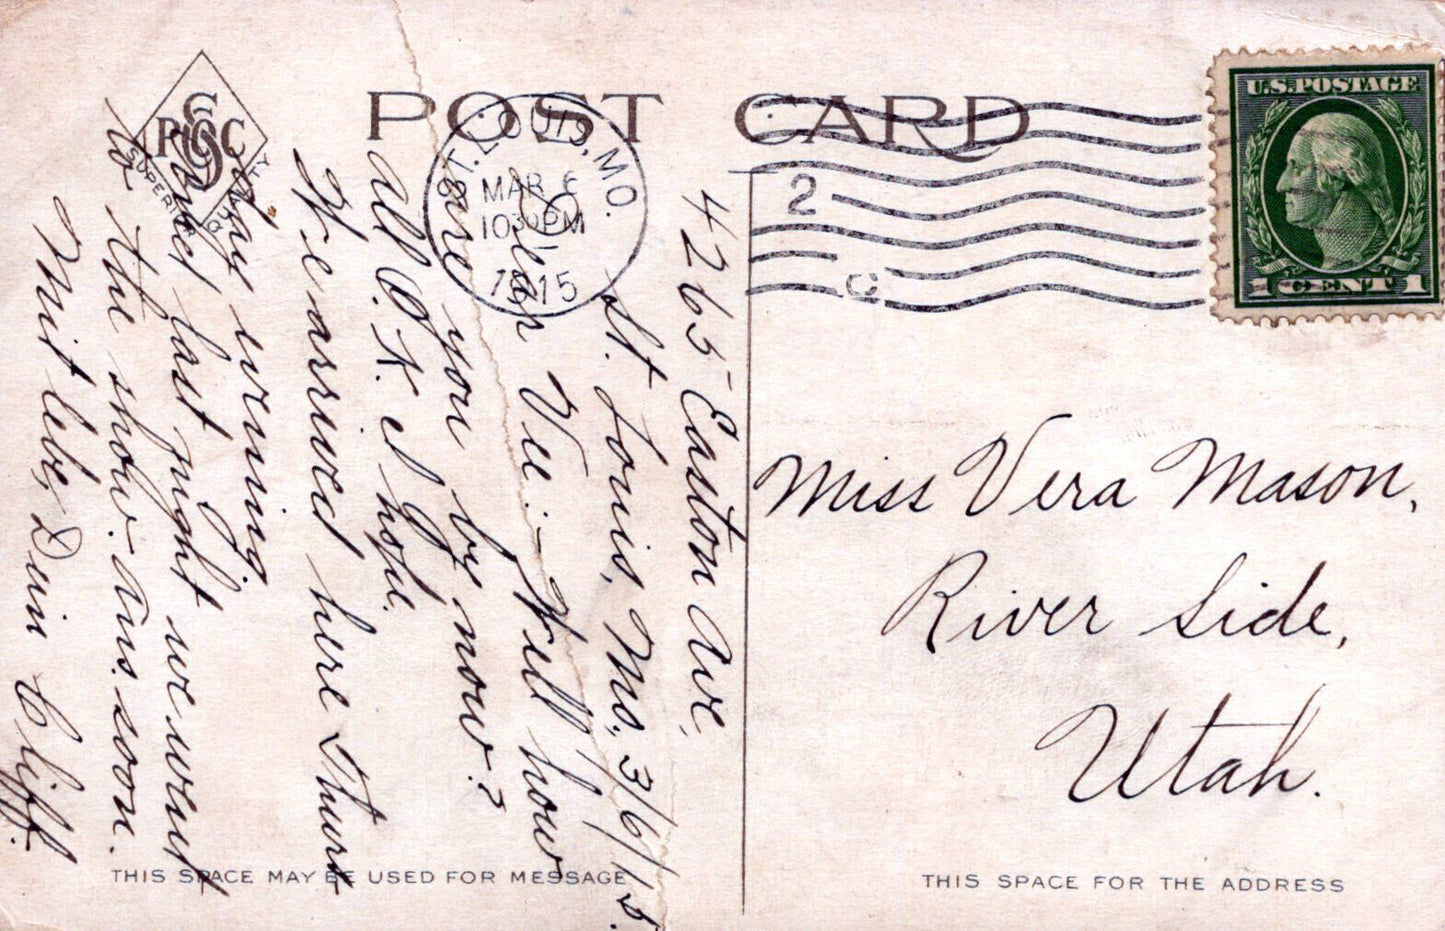 POST CARD
PCC
SUPERIOR QUALITY
ST. LOUIS, MO.
MAR 6
10 30 PM
1915
2
U.S. POSTAGE
1 CENT 1
4265 Easton Ave,
St. Louis, Mo., 3/6/15.
Dear Vee:- Well how
are you by now?
All O.K. I hope.
We arrived here Thurs-
day evening
and last night we went
to the show. Ans. soon.
Mit lebe, Dein Cliff.
Miss Vera Mason,
River Side,
Utah.
THIS SPACE MAY BE USED FOR MESSAGE
THIS SPACE FOR THE ADDRESS